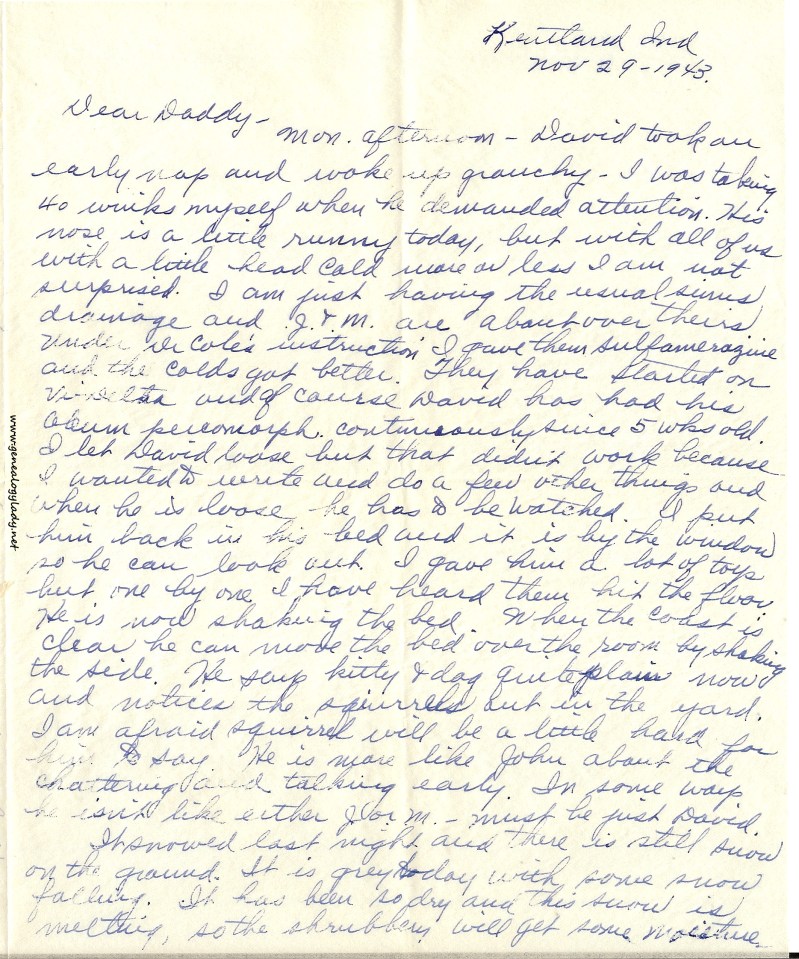 Kentland Ind
Nov 29-1943.
Dear Daddy-
Mon. afternoon - David took an
early nap and woke up grouchy - I was taking
40 winks myself when he demanded attention. His
nose is a little runny today, but with all of us
with a little head cold more or less I am not
surprised. I am just having the usual sinus
drainage and J. & M. are about over theirs
Under Dr Cole's instruction I gave them sulfamerazine
and the colds got better. They have started on
Vi-delta and of course David has had his
oleum percomorph. continuously since 5 wks old.
I let David loose but that didn't work because
I wanted to write and do a few other things and
when he is loose he has to be watched. I put
him back in his bed and it is by the window
so he can look out. I gave him a lot of toys
but one by one I have heard them hit the floor.
He is now shaking the bed. When the coast is
clear he can move the bed over the room by shaking
the side. He says kitty & dog quite plain now
and notices the squirrels out in the yard.
I am afraid squirrel will be a little hard for
him to say. He is more like John about the
chattering and talking early. In some ways
he isn't like either J. or M. - must be just David.
It snowed last night and there is still snow
on the ground. It is grey today with some snow
falling. It has been so dry and this snow is
melting, so the shrubbery will get some moisture.
www.genealogylady.net